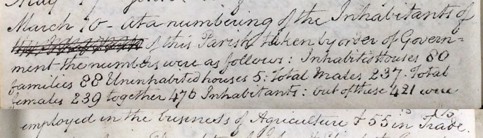 March 10 - at a numbering of the Inhabitants of
of this Parish taken by order of Govern-
ment the numbers were as follows: Inhabited houses 80
families 88 Uninhabited houses 5: Total Males 237. Total
females 239 together 476 Inhabitants: but of these 421 were
employed in the business of Agriculture & 55 in Trade.